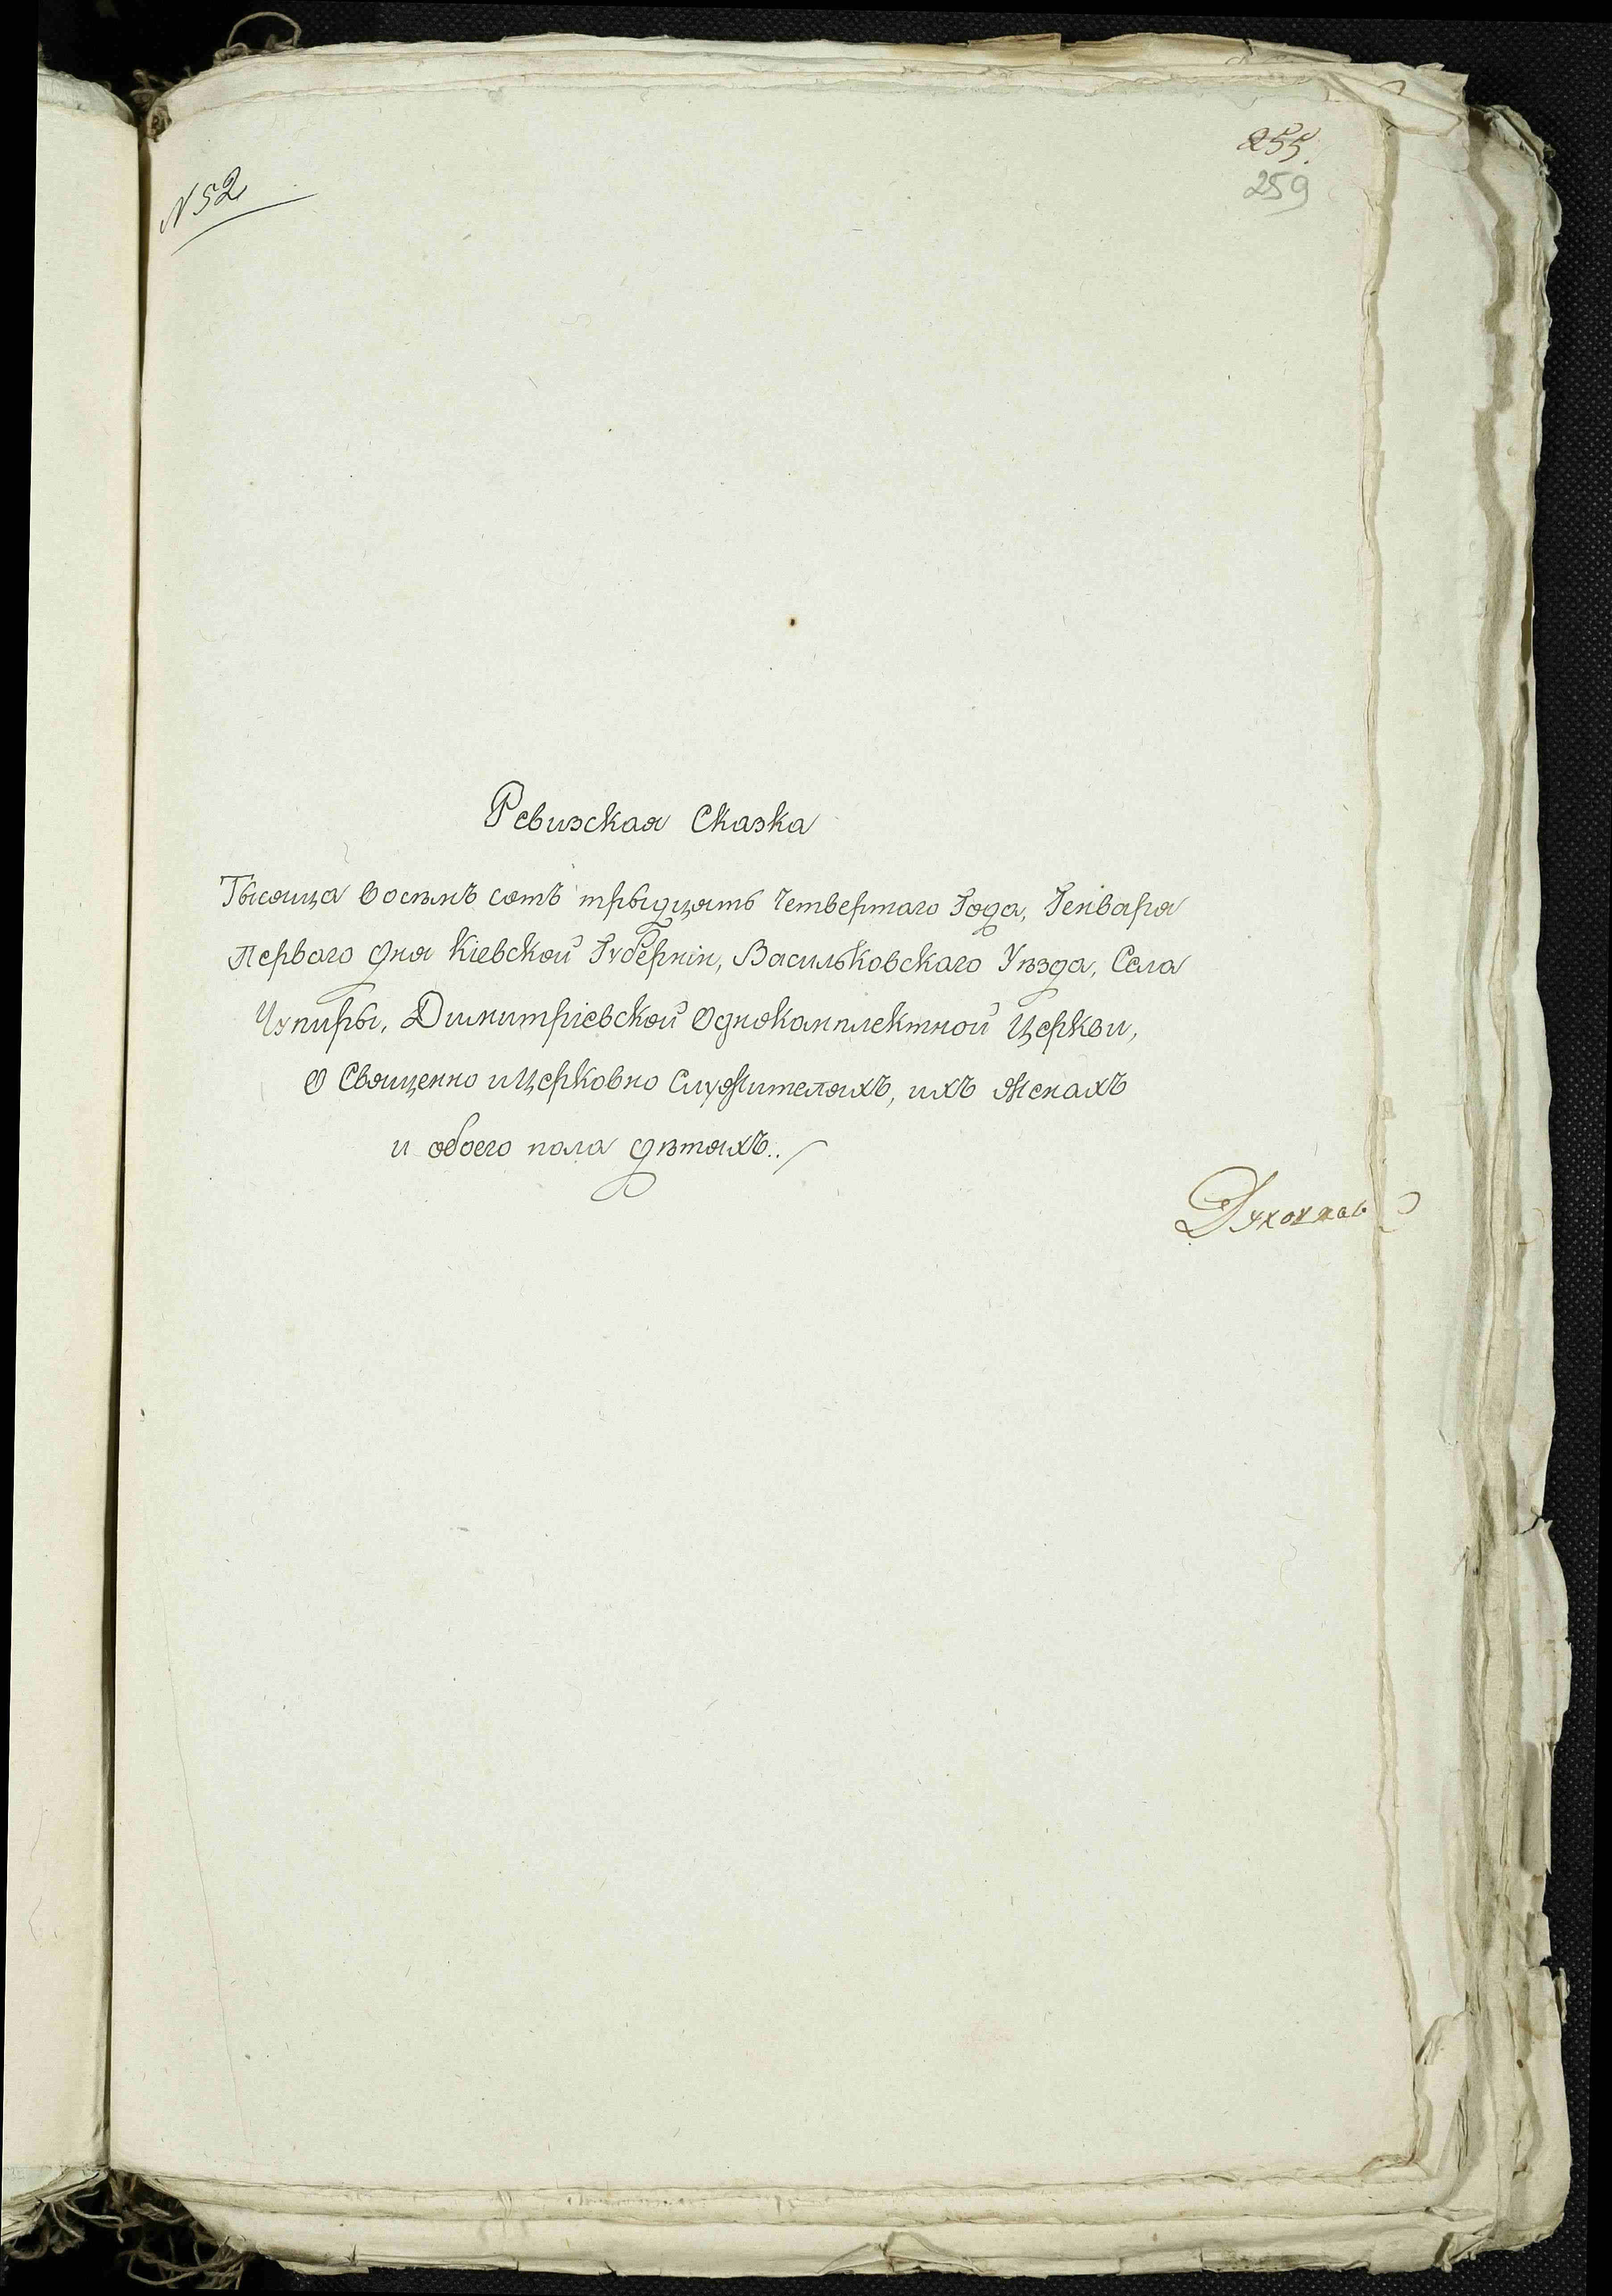 N 52
255.
259
Ревизская Сказка
Тысяща Восемъ сотъ трыдцять Четвертаго Года, Генваря
Перваго дня Кіевской Губерніи, Васильковскаго Уѣзда, Села
Чупиры, Димитріевской Однокамплектной Церкви,
О Священно и Церковно Служителяхъ, ихъ Женахъ
и обоего пола дѣтяхъ..